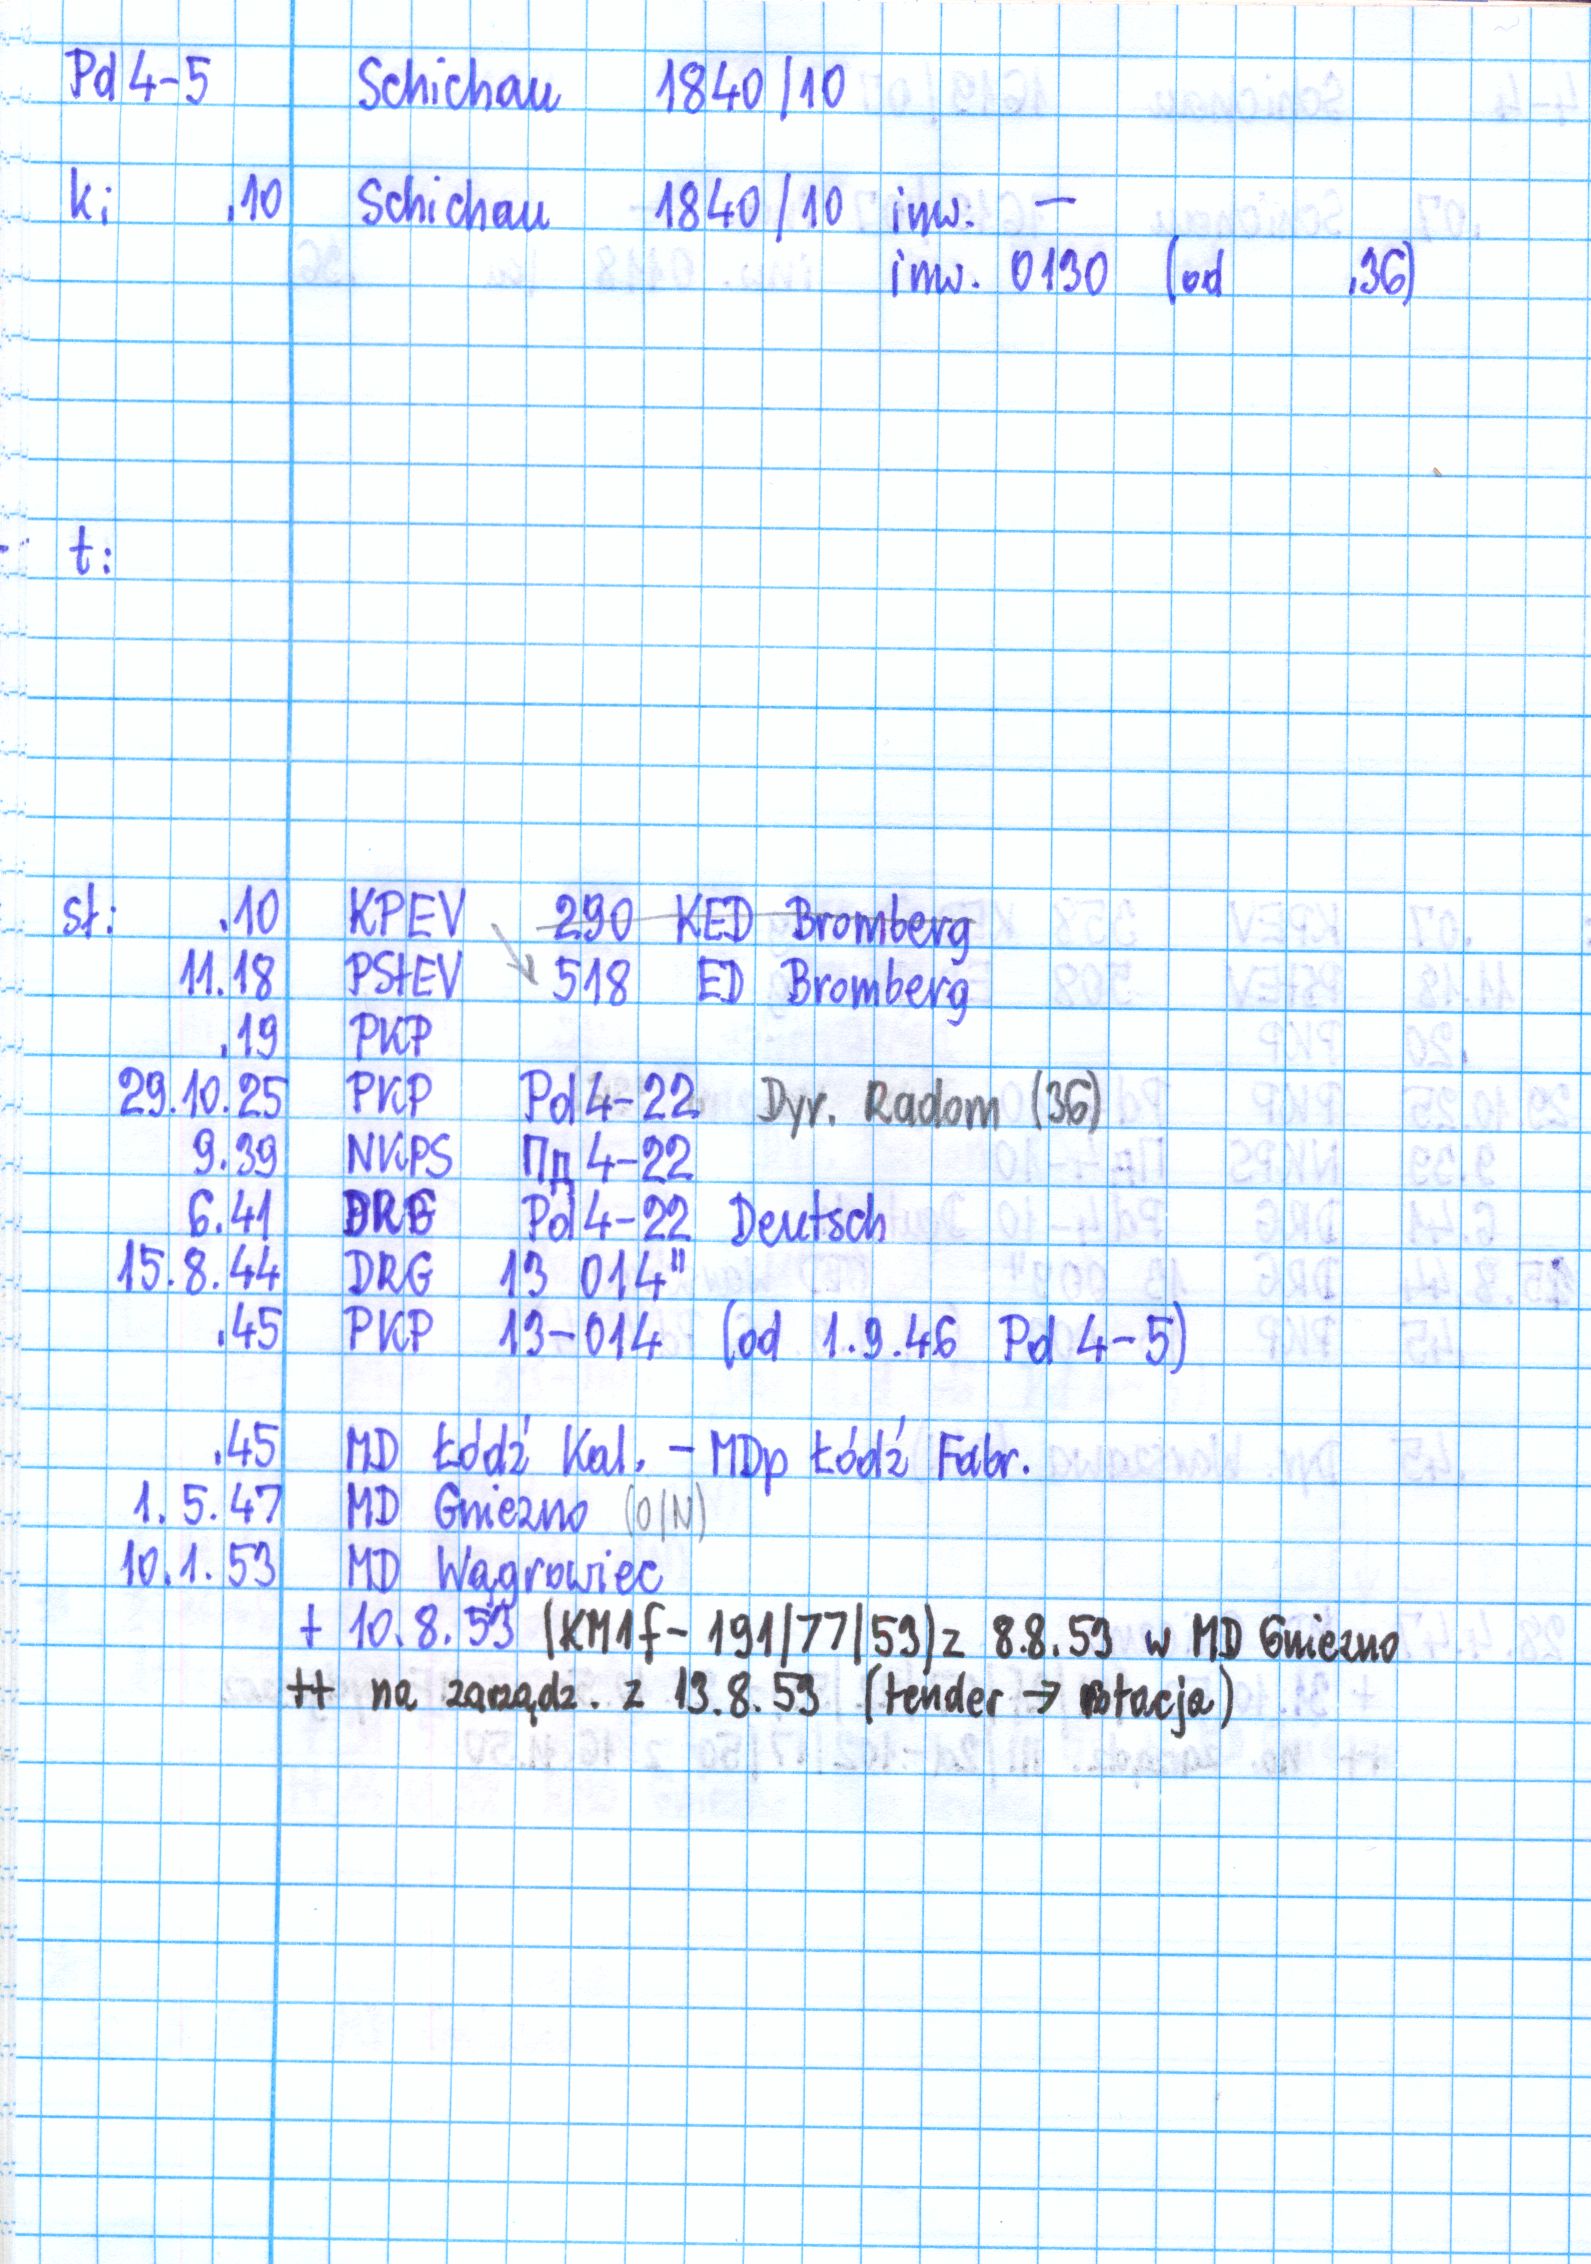 Pd 4-5 Schichau 1840/10
k: .10 Schichau 1840/10 inw. —
inw. 0130 (od .36)
t:
st: .10 KPEV 290 KED Bromberg
11.18 PStEV 518 ED Bromberg
.19 PKP
29.10.25 PKP Pd 4-22 Dyr. Radom (36)
9.39 NKPS Пд 4-22
6.41 DRG Pd 4-22 Deutsch
15.8.44 DRG 13 014"
.45 PKP 13-014 (od 1.9.46 Pd 4-5)
.45 MD Łódź Kal. - MDp Łódź Fabr.
1.5.47 MD Gniezno (O/N)
10.1.53 MD Wągrowiec
+ 10.8.53 (KM1f - 191/77/53) z 8.8.53 w MD Gniezno
++ na zarządz. z 13.8.53 (tender → rotacja)